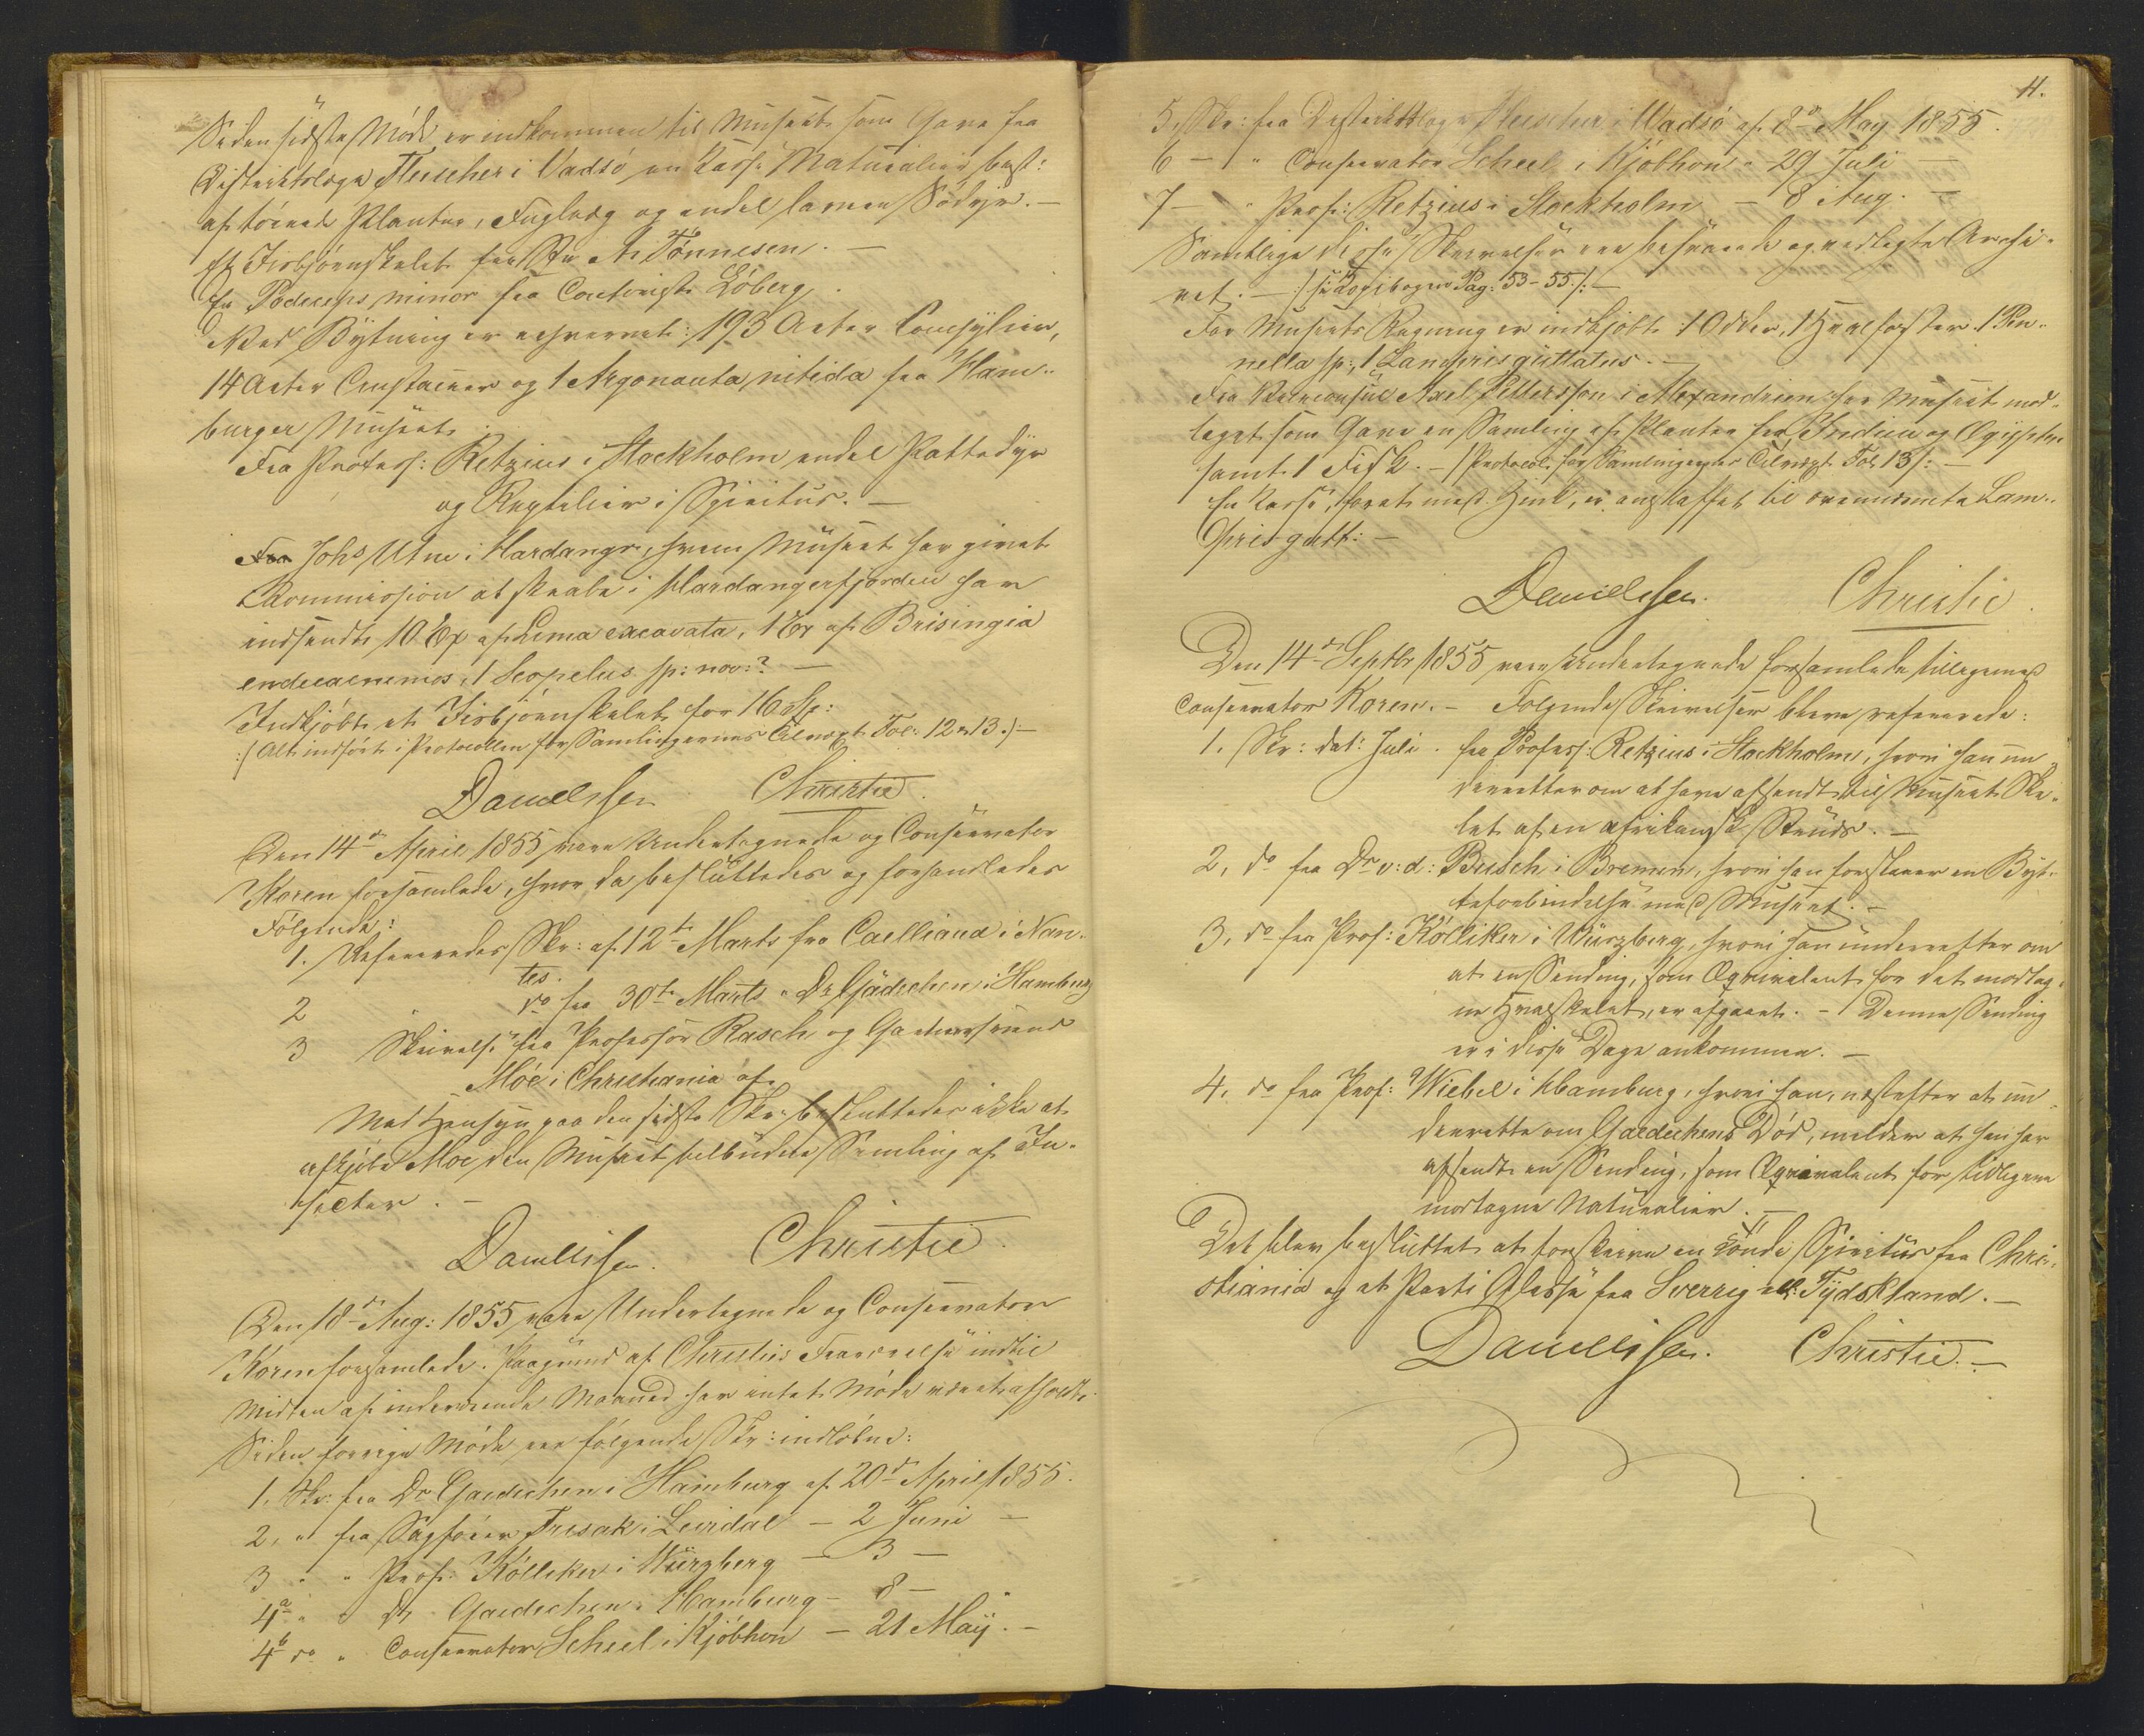 Siden sidste Möde er indkommen til Museet som Gave fra
Districtslæge Fleischer i Vadsö en Kasse Naturalier best:
af törrede Planter, Fugleæg og endel lavere Södyr. —
Et Isbjörnskelet fra Hr A. Tönnesen. —
En Podiceps minor fra Contorist Löberg.
Ved Bytning er erhvervet: 193 Arter Conchylier,
14 Arter Crustaceer og 1 Argonauta nitida fra Ham-
burger Museet.
Fra Profess: Retzius i Stockholm endel Pattedyr
og Reptilier i Spiritus. —
Fra Johs Utne i Hardanger, hvem Museet har givet
Commission at skrabe i Hardangerfjorden har
indsendt 10 Ex af Lima excavata, 1 Ex af Brisingia
endecacnemos, 1 Scopelus sp: nov:? —
Indkjöbt et Isbjörnskelet for 16 Sp:
:/ Alt indfört i Protocollen for Samlingernes Tilvext Fol: 12 & 13 /: —
Danielssen Christie.
Den 14de April 1855 vare Undertegnede og Conservator
Koren forsamlede, hvor da besluttedes og forhandledes
Fölgende:
1. Refereredes Skr: af 12te Marts fra Cailliaud i Nan-
tes.
2 do fra 30te Marts " Dr Gädechen i Hamburg
3 Skrivelse fra Professor Rasch og Gartnersvend
Möe i Christiania af
Med Hensyn paa den sidste Skr: besluttedes ikke at
afkjöbe Moe den Museet tilbudne Samling af In-
secter. —
Danielssen. Christie.
Den 18de Aug: 1855 vare Undertegnede og Conservator
Koren forsamlede. Paagrund af Christies Fraværelse indtil
Midten af indeværende Maaned har intet Möde været afholdt.
Siden forrige Möde ere fölgende Skr: indlöbne:
1. Skr. fra Dr Gaedechen i Hamburg af 20de April 1855.
2, " fra Sagförer Tresak i Leirdal — 2 Juni —
3 " " Prof: Kölliker i Würzberg — 3 —
4a " " Dr Gaedechen i Hamburg — 8 —
4b do " Conservator Scheel i Kjöbhvn — 21 Maij. —
11.
5, Skr: fra Districtslæge Fleischer i Vadsö af 8de May 1855.
6 — " Conservator Scheel i Kjöbhvn " 29 Juli —
7 — " Prof: Retzius i Stockholm — 8 Aug. —
Samtlige disse Skrivelser ere besvarede og vedlagte Archi-
vet. — :/ se Kopibogen Pag: 53–55 /: —
For Museets Regning er indkjöbt 1 Odder, 1 Hvalfoster, 1 Pen-
nella sp:, 1 Lampris guttatus. —
Fra Viceconsul Axel Pettersson i Alexandrien har Museet mod-
taget som Gave en Samling af Planter fra Indien og Ægypten
samt 1 Fisk. — /: Protocol for Samlingernes Tilvæxt Fol 13 /: —
En Kasse, foret med Zink, er anskaffet til ovennævnte Lam-
pris gutt: —
Danielssen. Christie.
Den 14de Septbr 1855 vare Undertegnede forsamlede tilligemed
Conservator Koren. — Folgende Skrivelser bleve refererede:
1. Skr: dat: Juli. fra Profess: Retzius i Stockholm, hvori han un-
derretter om at have afsendt til Museet Ske-
let af en afrikansk Struds. —
2, do fra Dr v: d: Busch i Bremen, hvori han foreslaaer en Byt-
teforbindelse med Museet. —
3, do fra Prof: Kölliker i Würzberg, hvori han underretter om
at en Sending, som Æqvivalent for det modtag-
ne Hvalskelet, er afgaaet. — Denne Sending
er i disse Dage ankommen. —
4, do fra Prof: Wiebel i Hamburg, hvori han, næstefter at un-
derrette om Gaedechens Död, melder at han har
afsendt en Sending, som Æqvivalent for tidligere
modtagne Naturalier. —
Det blev besluttet at forskrive en Tönde Spiritus fra Chri-
stiania og et Parti Glasse fra Sverrig ell: Tydskland. —
Danielssen. Christie. —